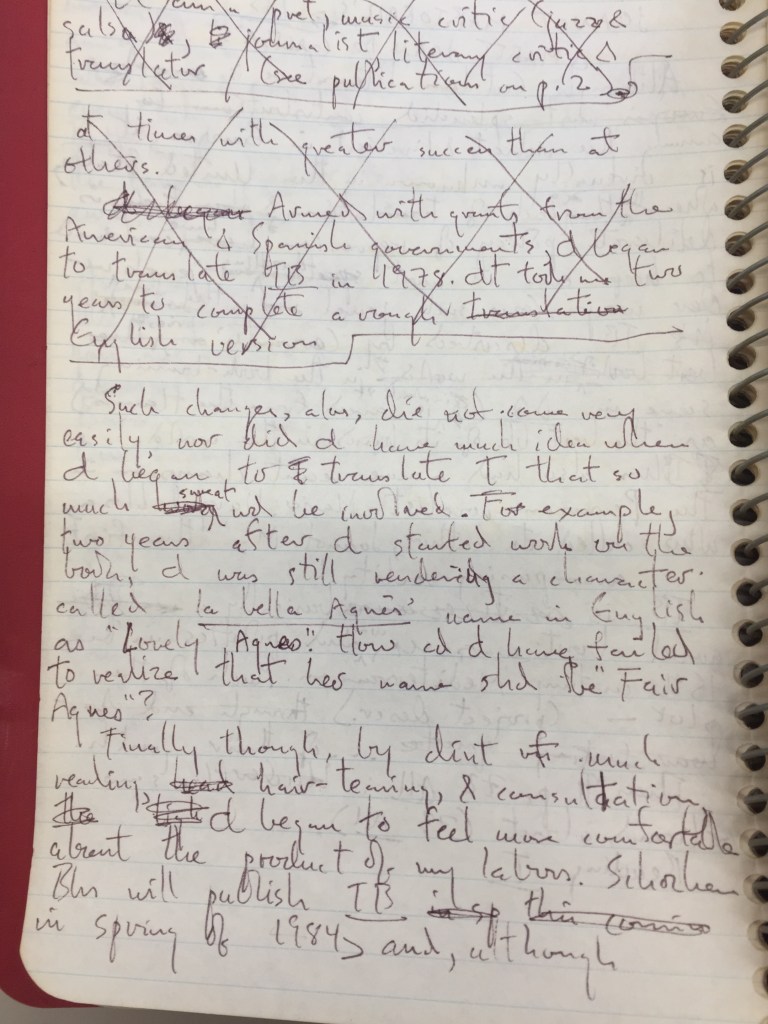 I am a poet, music critic (jazz &
salsa), journalist, literary critic &
translator (see publications on p. 2)
at times with greater success than at
others.
Armed with grants from the
American & Spanish governments, I began
to translate TB in 1978. It took me two
years to complete a rough translation
English version
Such changes, alas, die not come very
easily, nor did I have much idea when
I began to translate T that so
much sweat wd be involved. For example,
two years after I started work on the
book, I was still rendering a character
called la bella Agnès' name in English
as "Lovely Agnes". How cd I have failed
to realize that her name shd be "Fair
Agnes"?
Finally though, by dint of much
reading, hair-tearing, & consultation,
I began to feel more comfortable
about the product of my labors. Schocken
Bks will publish TB in sp this coming
in spring of 1984, and, although